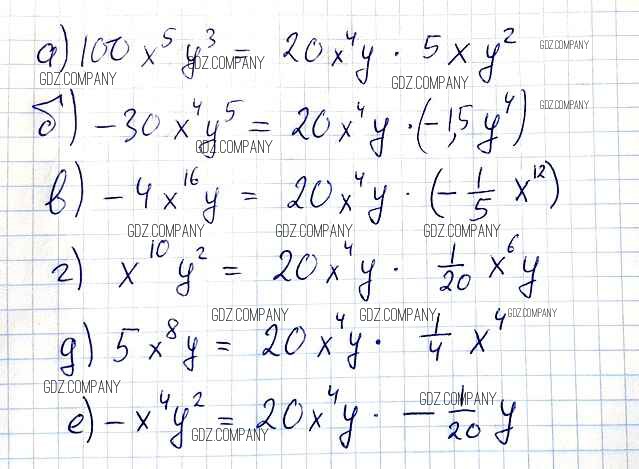 а) 100 x⁵ y³ = 20x⁴y · 5 x y² GDZ.COMPANY
GDZ.COMPANY GDZ.COMPANY GDZ.COMPANY
б) −30 x⁴y⁵ = 20x⁴y · (−1,5 y⁴) GDZ.COMPANY
GDZ.COMPANY
в) −4x¹⁶y = 20x⁴y · (−1/5 x¹²)
GDZ.COMPANY GDZ.COMPANY GDZ.COMPANY
г) x¹⁰ y² = 20x⁴y · 1/20 x⁶y
GDZ.COMPANY GDZ.COMPANY GDZ.COMPANY
д) 5x⁸y = 20x⁴y · 1/4 x⁴
GDZ.COMPANY GDZ.COMPANY
е) −x⁴y² = 20x⁴y · −1/20 y
GDZ.COMPANY